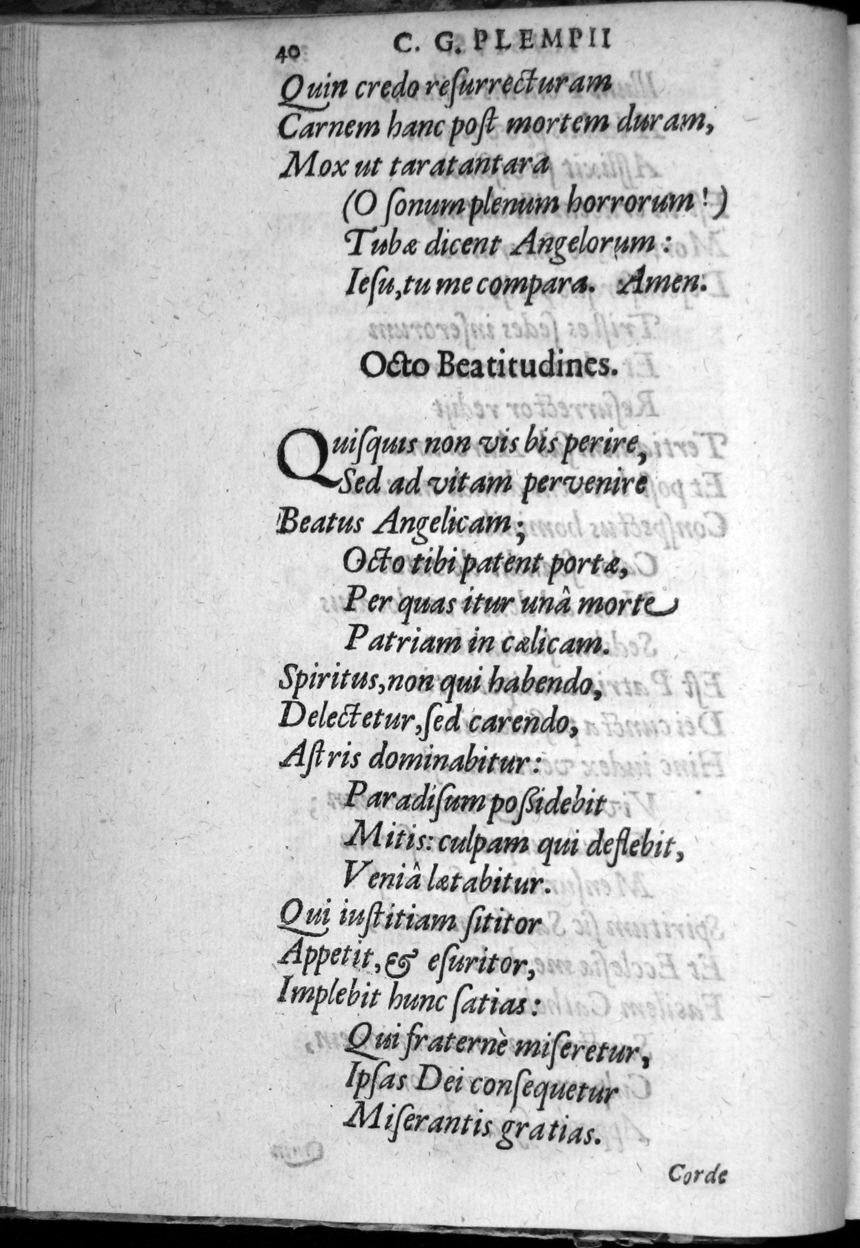 40 C. G. PLEMPII
Quin credo reſurrecturam
Carnem hanc poſt mortem duram,
Mox ut taratantara
(O ſonum plenum horrorum!)
Tubæ dicent Angelorum:
Ieſu, tu me compara. Amen.
Octo Beatitudines.
Quiſquis non vis bis perire,
Sed ad vitam pervenire
Beatus Angelicam;
Octo tibi patent portæ,
Per quas itur unâ morte
Patriam in cælicam.
Spiritus, non qui habendo,
Delectetur, ſed carendo,
Aſtris dominabitur:
Paradiſum poſſidebit
Mitis: culpam qui deflebit,
Veniâ lætabitur.
Qui iuſtitiam ſititor
Appetit, & eſuritor,
Implebit hunc ſatias:
Qui fraternè miſeretur,
Ipſas Dei conſequetur
Miſerantis gratias.
Corde